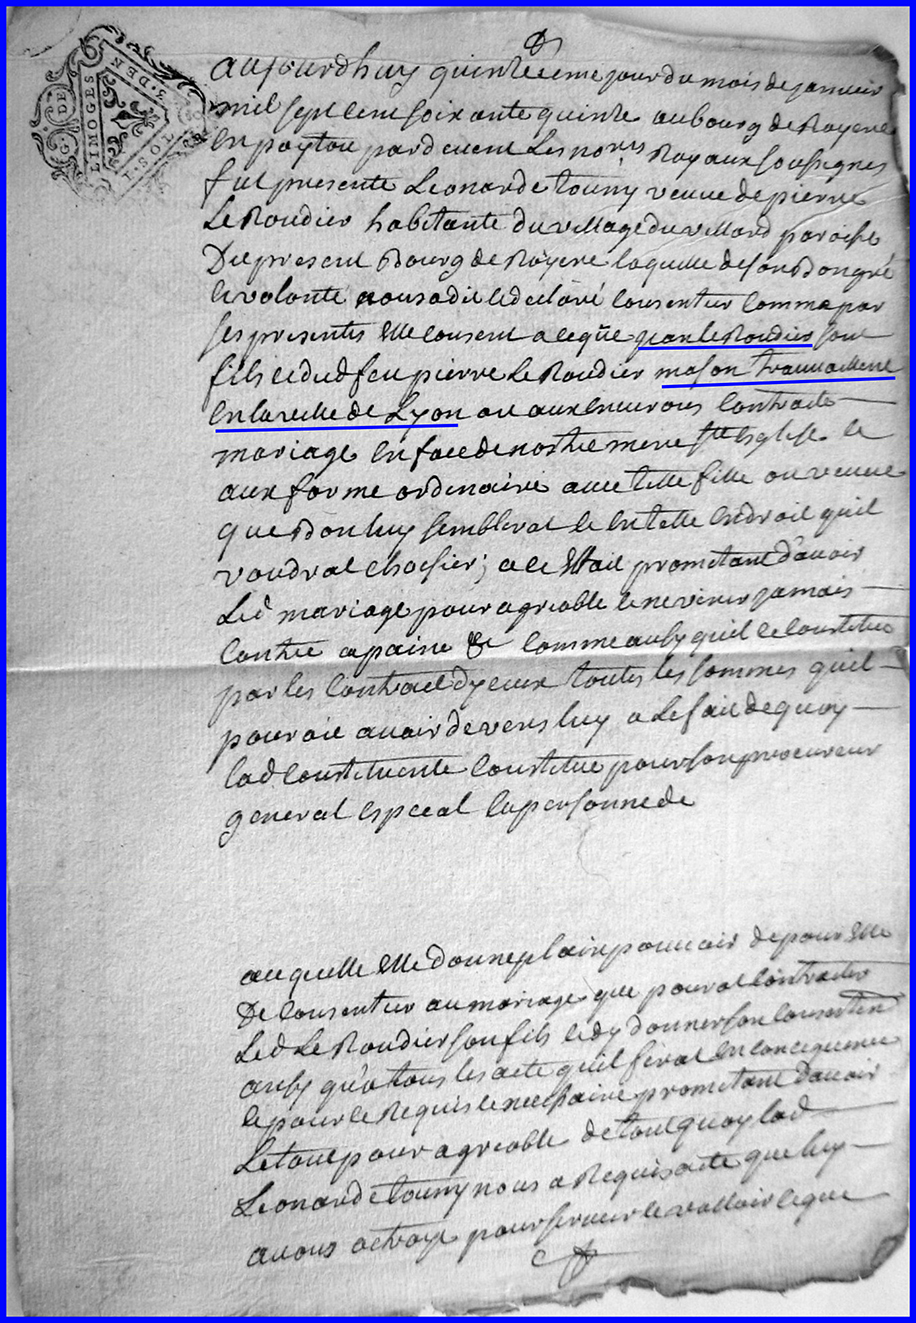 G. DE LIMOGES
3. DEN
1. SOL
aujourdhuy quinzeieme jour du mois de janvier
mil sept cent soixante quinze au bourg de Royere
en poytou pardevent les nores Royaux soussignes
fut presente Leonarde touny veuve de pierre
Le Roudier habitante du village du villard paroisse
Du present Bourg de Royere laquelle de son Bon gré
et volonté nous a dit et declaré consentir comme par
ses presentes elle consent a ce que jean le Roudier son
fils et dud feu pierre le Roudier mason travaillent
en la ville de Lyon ou aux environs contracte
mariage en face de nostre mere ste esglise et
aux forme ordinaire avec telle fille ou veuve
que Bon luy semblerat et en telle endroit quil
voudrat choisir; a cet effait prometant d'avoir
Led mariage pour agreable et ne venir jamais
contre apaine & comme ausy quil se constitue
par les contract dyceux toutes les sommes quil
pouroit avoir devers luy a Le fait de quoy
lad constituente constitue pour son procureur
general espceal la personne de
auquelle elle donne plain pouvoir de pour elle
De consentir au mariage que pourat contracter
Led Le Roudier son fils et dy donner son consentent
ausy qu'a tous les acte quil ferat en concequence
et pour le Requis et necessaire prometant d'avoir
Le tout pour agreable de tout quoy lad
Leonarde touny nous a Requis acte que luy
avons octroye pour servir et valloir ce que